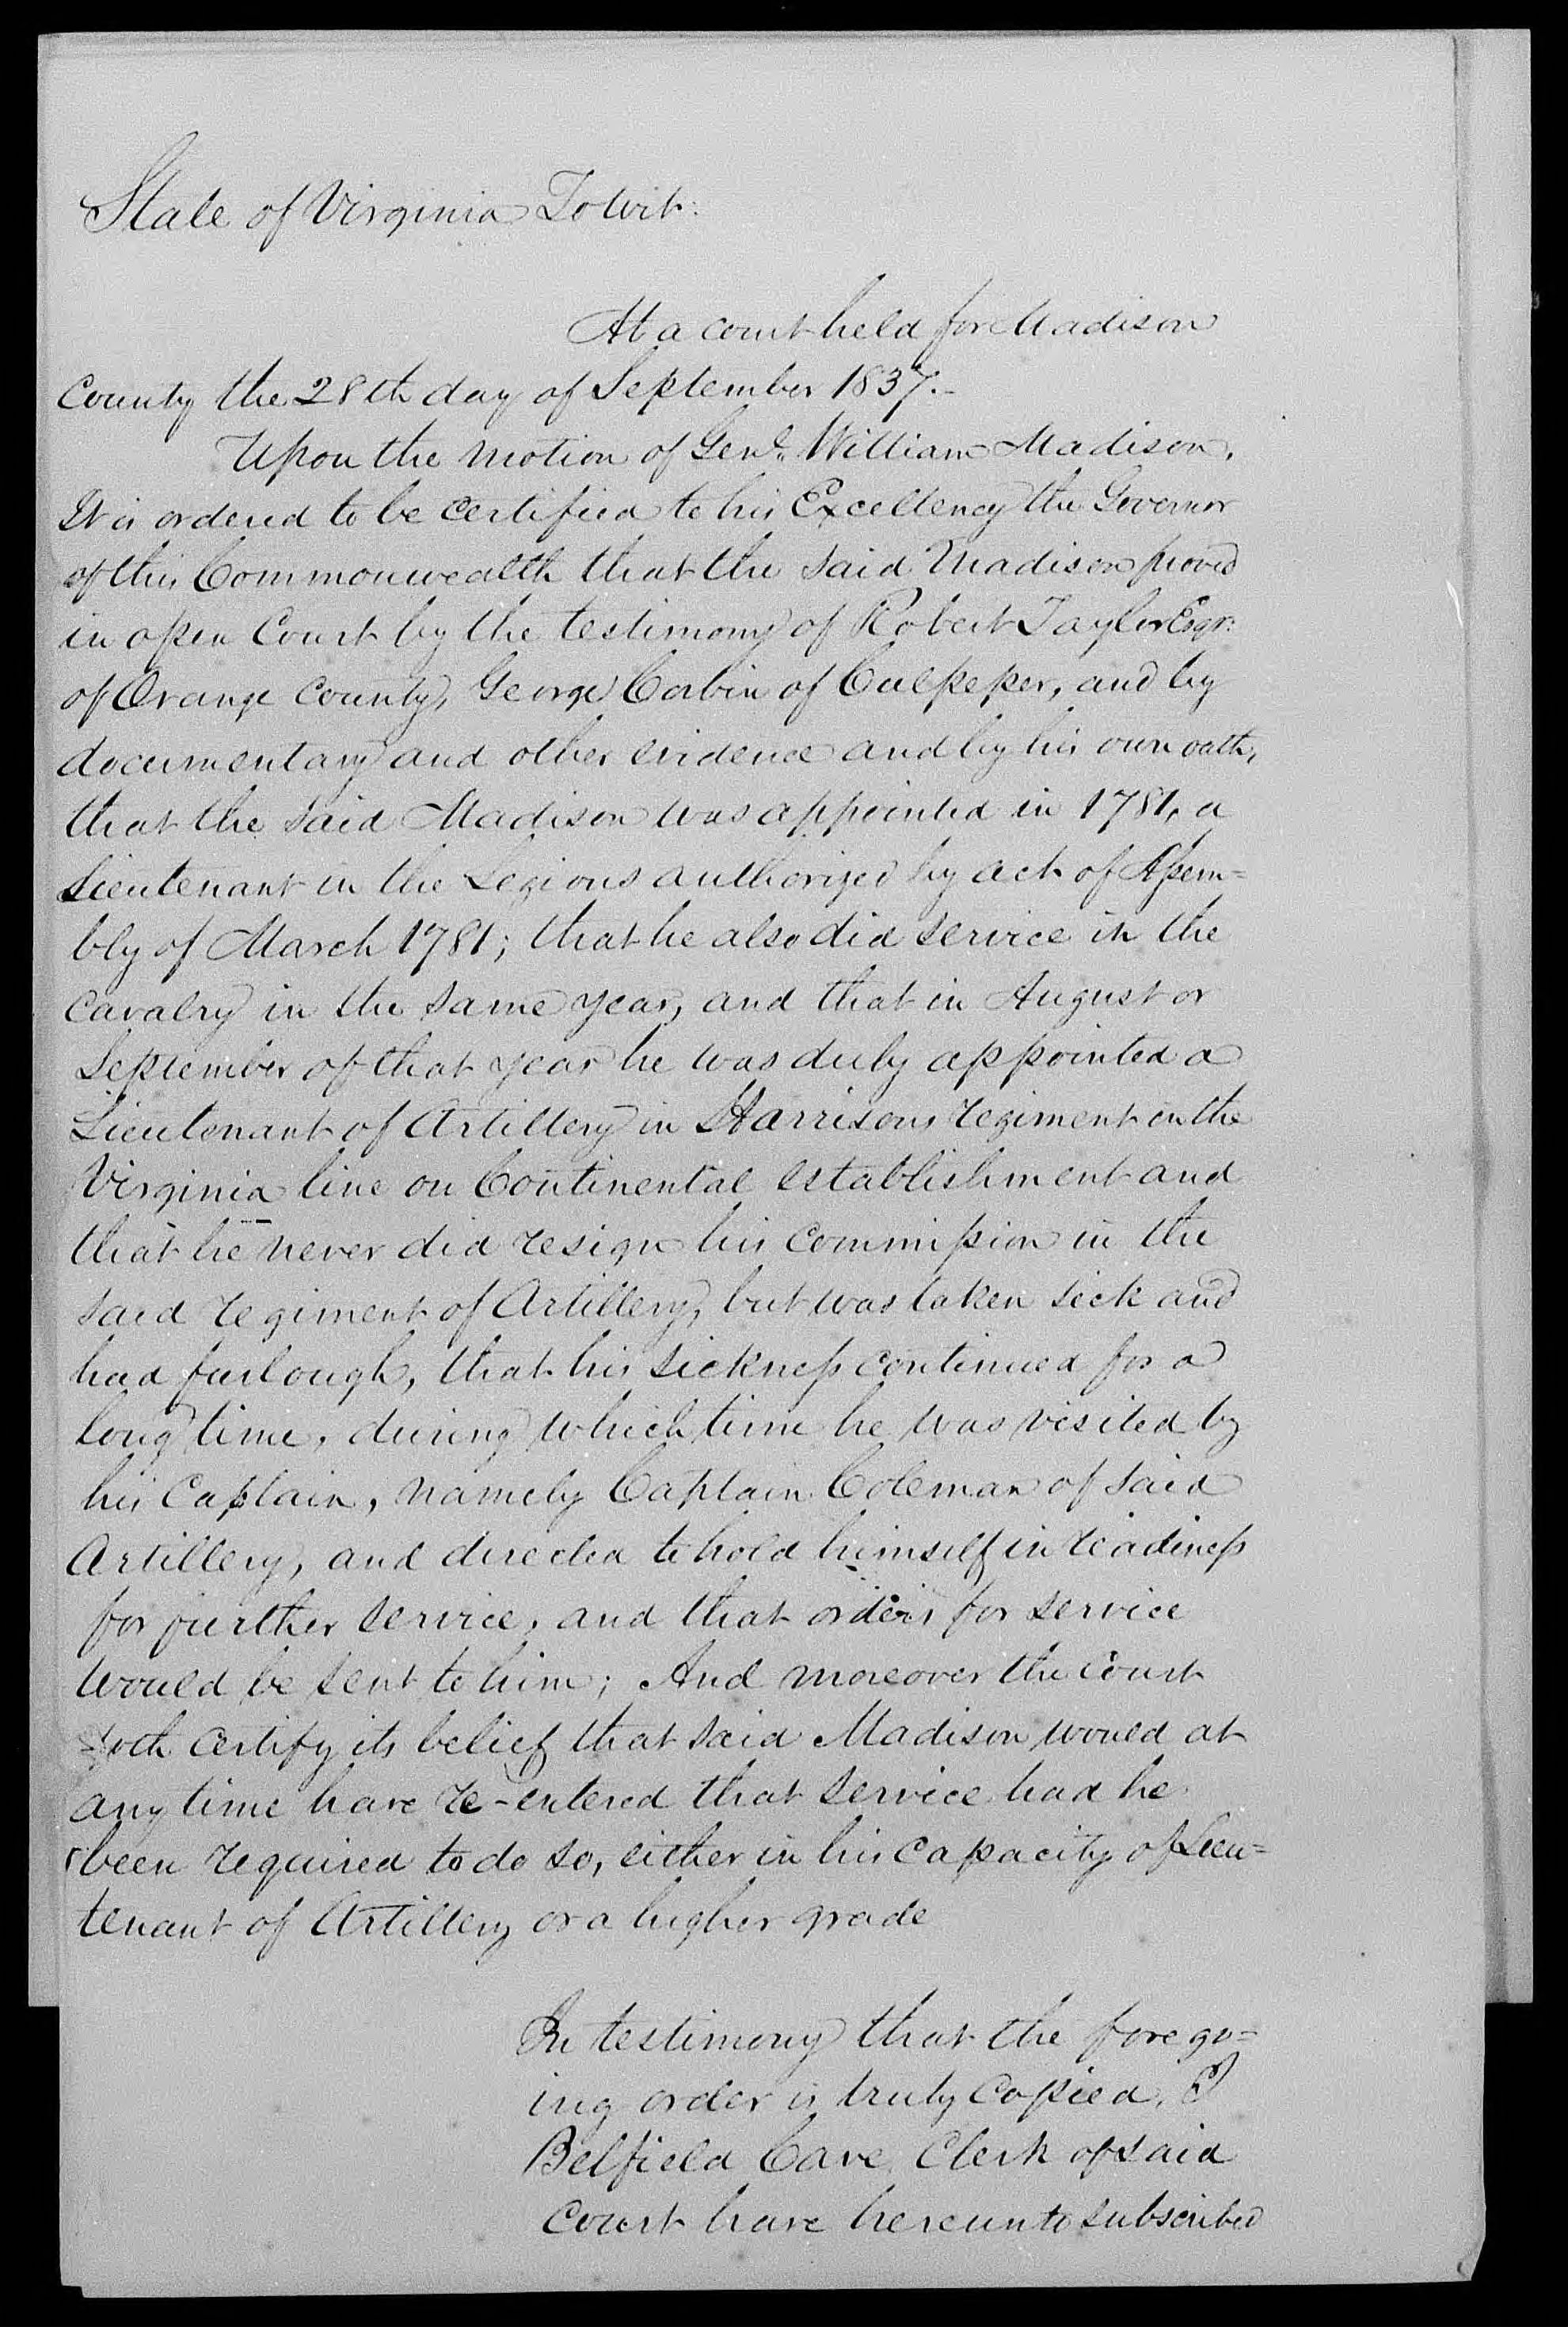 State of Virginia Towit:
At a court held for Madison
County the 28th day of September 1837.-
Upon the motion of Genl. William Madison,
It is ordered to be certified to his Excellency the Governor
of this Commonwealth that the said Madison proved
in open Court by the testimony of Robert Taylor Esqr:
of Orange County, George Corbin of Culpeper, and by
documentary and other evidence and by his own oath,
that the said Madison was appointed in 1781, a
Lieutenant in the Legions authorized by act of Assem=
bly of March 1781; that he also did service in the
Cavalry in the same year, and that in August or
September of that year he was duly appointed a
Lieutenant of Artillery in Harrisons regiment in the
Virginia line on Continental establishment and
that he never did resign his commission in the
said regiment of Artillery, but was taken sick and
had furlough, that his sickness continued for a
long time, during which time he was visited by
his Captain, namely Captain Coleman of said
Artillery, and directed to hold himself in readiness
for further service, and that orders for service
would be sent to him; And moreover the Court
doth certify its belief that said Madison would at
any time have re-entered that service had he
been required to do so, either in his capacity of Lieu=
tenant of Artillery or a higher grade
In testimony that the forego=
ing order is truly copied, I
Belfield Cave Clerk of said
Court have hereunto subscribed